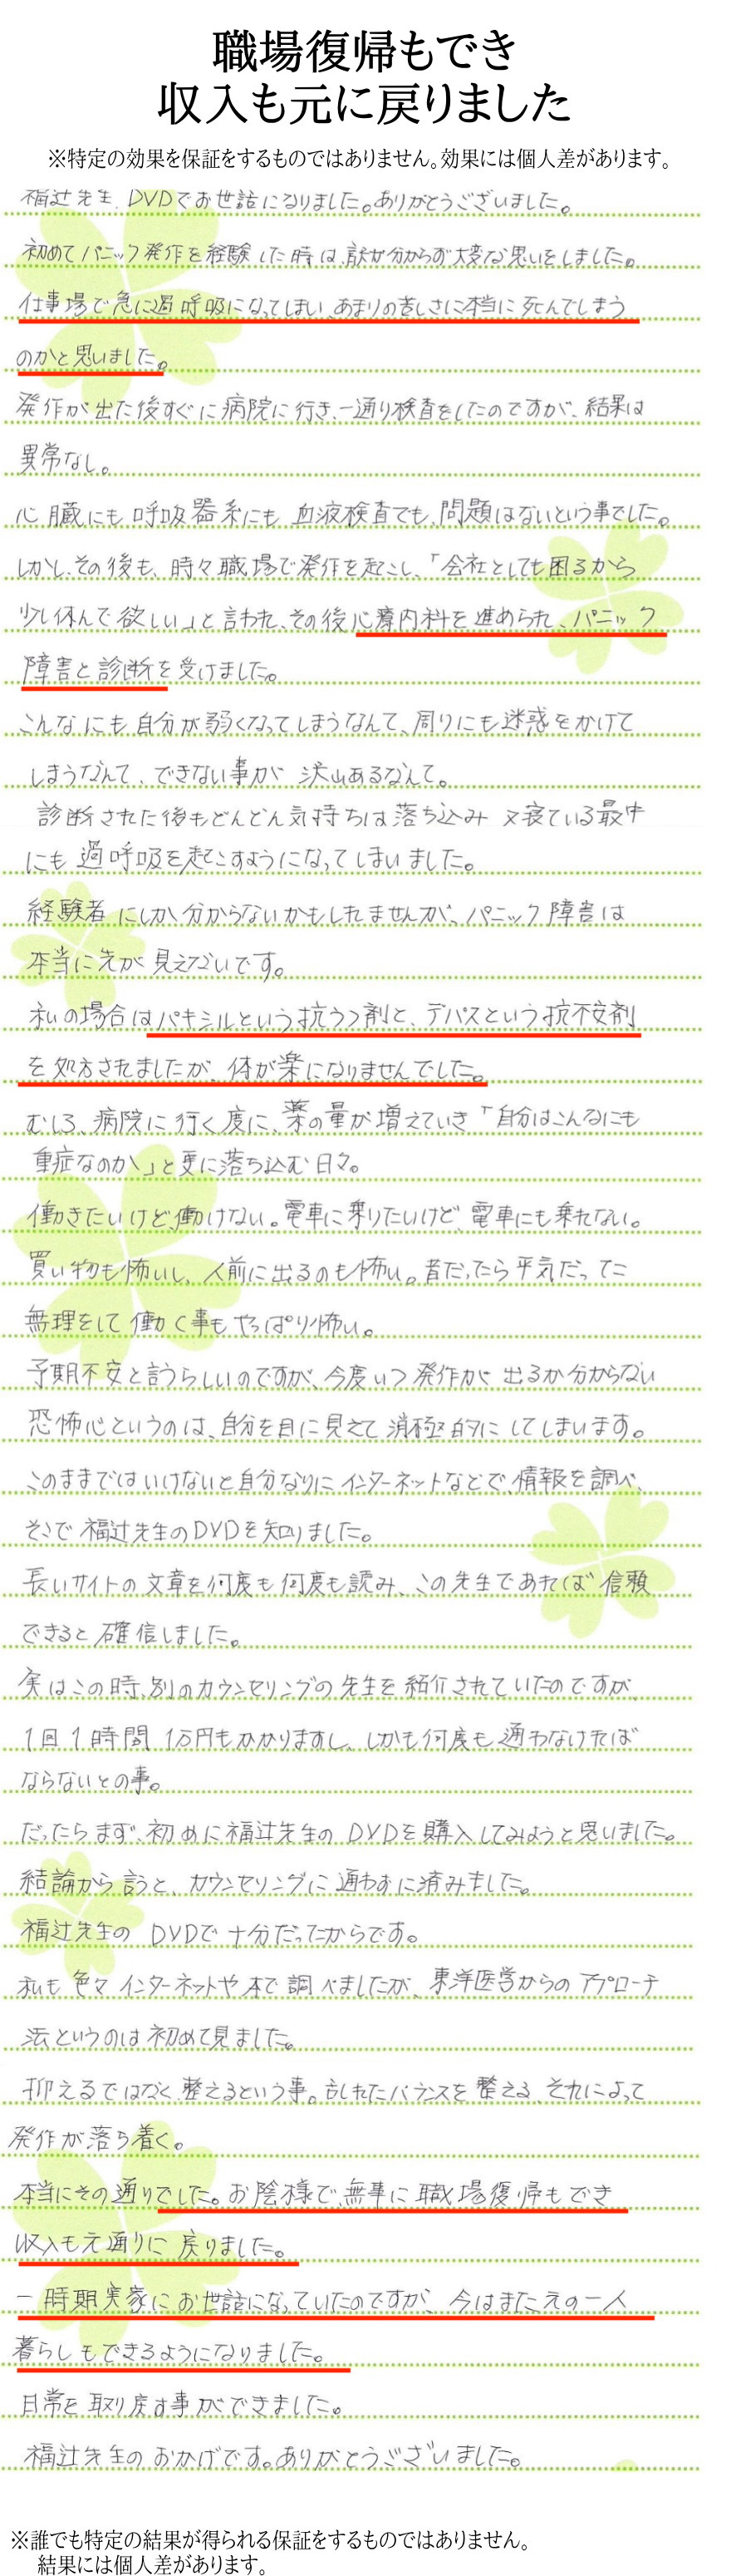 職場復帰もでき
収入も元に戻りました
※特定の効果を保証をするものではありません。効果には個人差があります。
福辻先生、DVDでお世話になりました。ありがとうございました。
初めてパニック発作を経験した時は、訳が分からず大変な思いをしました。
仕事場で急に過呼吸になってしまい、あまりの苦しさに本当に死んでしまう
のかと思いました。
発作が出た後すぐに病院に行き、一通り検査をしたのですが、結果は
異常なし。
心臓にも呼吸器系にも血液検査でも、問題はないという事でした。
しかし、その後も、時々職場で発作を起こし、「会社としても困るから
少し休んで欲しい」と言われ、その後心療内科を進められ、パニック
障害と診断を受けました。
こんなにも自分が弱くなってしまうなんて、周りにも迷惑をかけて
しまうなんて、できない事が沢山あるなんて。
診断された後もどんどん気持ちは落ち込み又寝ている最中
にも過呼吸を起こすようになってしまいました。
経験者にしか分からないかもしれませんが、パニック障害は
本当に先が見えないです。
私の場合はパキシルという抗うつ剤と、デパスという抗不安剤
を処方されましたが、体が楽になりませんでした。
むしろ、病院に行く度に、薬の量が増えていき「自分はこんなにも
重症なのか」と更に落ち込む日々。
働きたいけど、働けない。電車に乗りたいけど、電車にも乗れない。
買い物も怖いし、人前に出るのも怖い。昔だったら平気だってに
無理をして働く事もやっぱり怖い。
予期不安と言うらしいのですが、今度いつ発作が出るか分からない
恐怖心というのは、自分を目に見えて消極的にしてしまいます。
このままではいけないと自分なりにインターネットなどで、情報を調べ、
そこで福辻先生のDVDを知りました。
長いサイトの文章を何度も何度も読み、この先生であれば信頼
できると確信しました。
実はこの時、別のカウンセリングの先生を紹介されていたのですが、
1回1時間1万円もかかりますし、しかも何度も通わなければ
ならないとの事。
だったらまず、初めに福辻先生のDVDを購入してみようと思いました。
結論から言うと、カウンセリングに通わずに済みました。
福辻先生のDVDで十分だったからです。
私も色々インターネットや本で調べましたが、東洋医学からのアプローチ
法というのは初めて見ました。
抑えるではなく、整えるという事。乱れたバランスを整える、それによって
発作が落ち着く。
本当にその通りでした。お陰様で、無事に職場復帰もでき
収入も元通りに戻りました。
一時期実家にお世話になっていたのですが、今はまた元の一人
暮らしもできるようになりました。
日常を取り戻す事ができました。
福辻先生のおかげです。ありがとうございました。
※誰でも特定の結果が得られる保証をするものではありません。
結果には個人差があります。